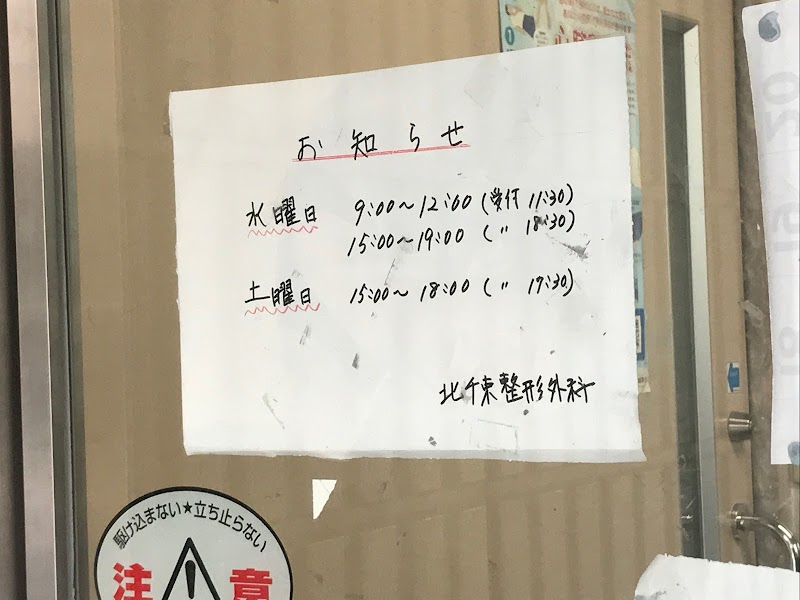 お知らせ
水曜日 9:00〜12:00 (受付 11:30)
15:00〜19:00 ( 〃 18:30)
土曜日 15:00〜18:00 ( 〃 17:30)
北千束整形外科
駆け込まない★立ち止らない
注意